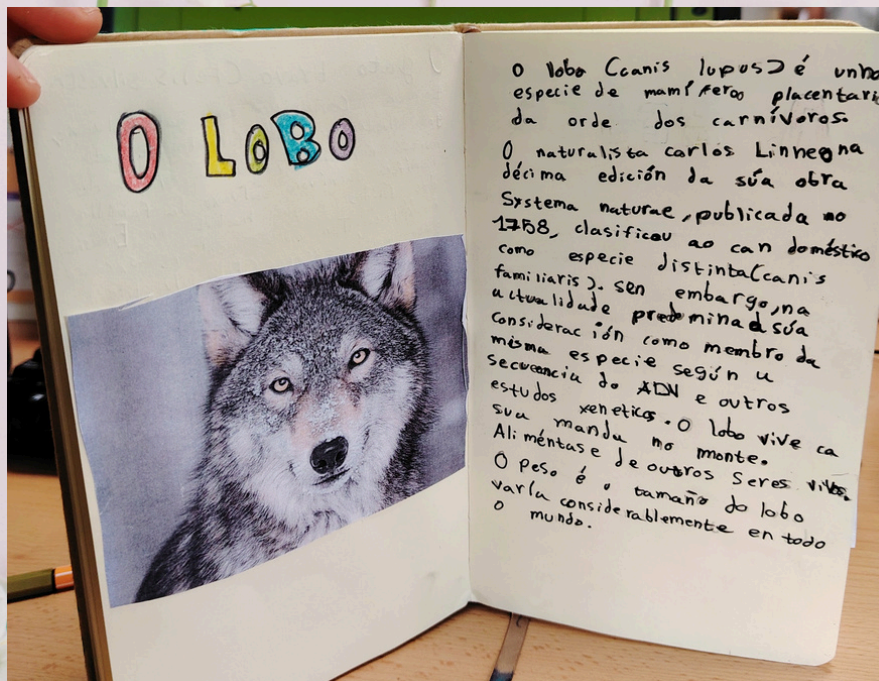 O LOBO
O lobo (canis lupus) é unha
especie de mamíferos placentari
da orde dos carnívoros.
O naturalista carlos Linneo na
décima edición da súa obra
Systema naturae, publicada no
1758, clasificou ao can doméstico
como especie distinta (canis
familiaris). sen embargo, na
actualidade predomina a súa
consideración como membro da
misma especie según a
secuencia do ADN e outros
estudos xeneticos. O lobo vive ca
sua manda no monte.
Aliméntase de outros seres vivos.
O peso é o tamaño do lobo
varía considerablemente en todo
o mundo.